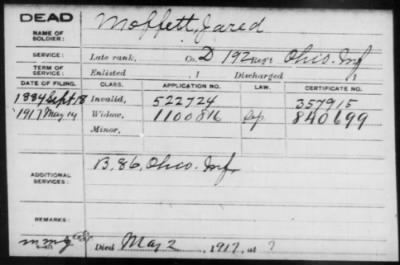 DEAD
NAME OF SOLDIER: Moffett, Jared
SERVICE: Late rank, Co. D 192 Reg't Ohio Inf
TERM OF SERVICE: Enlisted , 1 Discharged , 1
DATE OF FILING. CLASS. APPLICATION NO. LAW. CERTIFICATE NO.
1884 Sept. 18 Invalid, 522724 357915
1917 May 14 Widow, 1100816 840699
Minor,
ADDITIONAL SERVICES: B. 86, Ohio Inf
REMARKS:
Died May 2, 1917, at ?